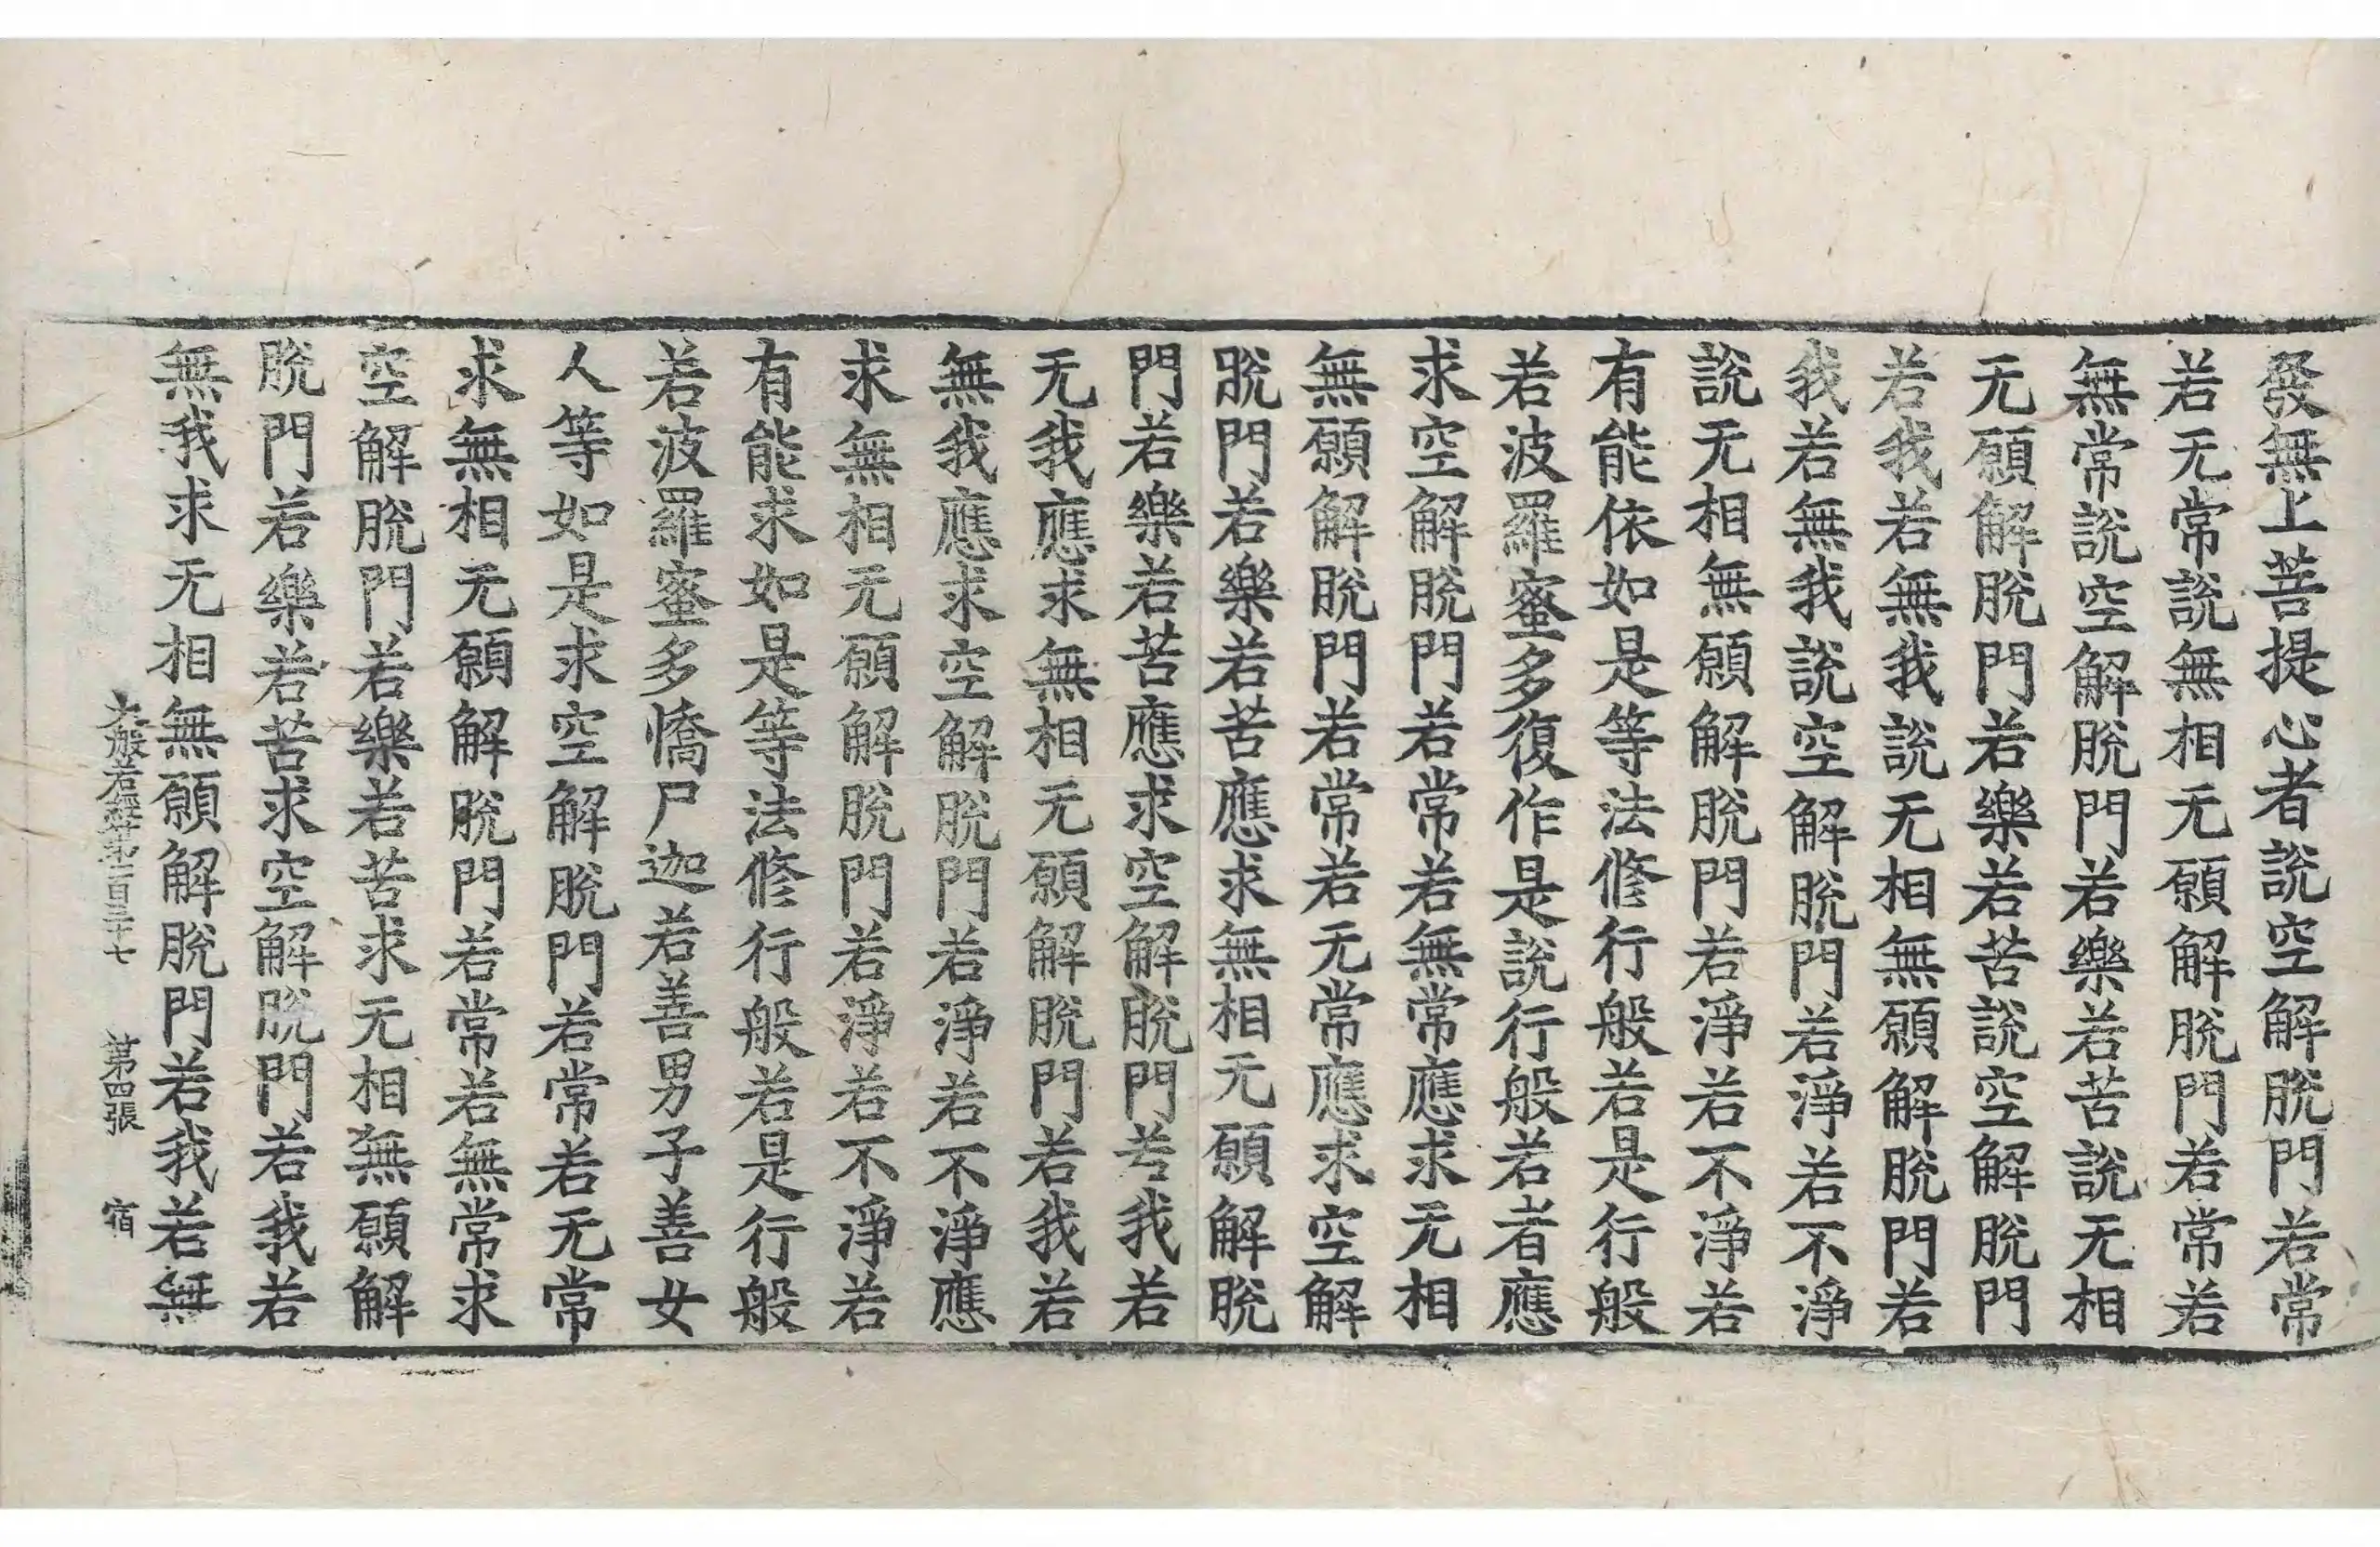 發無上菩提心者說空解脫門若常
若无常說無相无願解脫門若常若
無常說空解脫門若樂若苦說无相
无願解脫門若樂若苦說空解脫門
若我若無我說无相無願解脫門若
我若無我說空解脫門若淨若不淨
說无相無願解脫門若淨若不淨若
有能依如是等法修行般若是行般
若波羅蜜多復作是說行般若者應
求空解脫門若常若無常應求无相
無願解脫門若常若无常應求空解
脫門若樂若苦應求無相无願解脫
門若樂若苦應求空解脫門若我若
无我應求無相无願解脫門若我若
無我應求空解脫門若淨若不淨應
求無相无願解脫門若淨若不淨若
有能求如是等法修行般若是行般
若波羅蜜多憍尸迦若善男子善女
人等如是求空解脫門若常若无常
求無相无願解脫門若常若無常求
空解脫門若樂若苦求无相無願解
脫門若樂若苦求空解脫門若我若
無我求无相無願解脫門若我若無
大般若經第一百三十七 第四張 宿